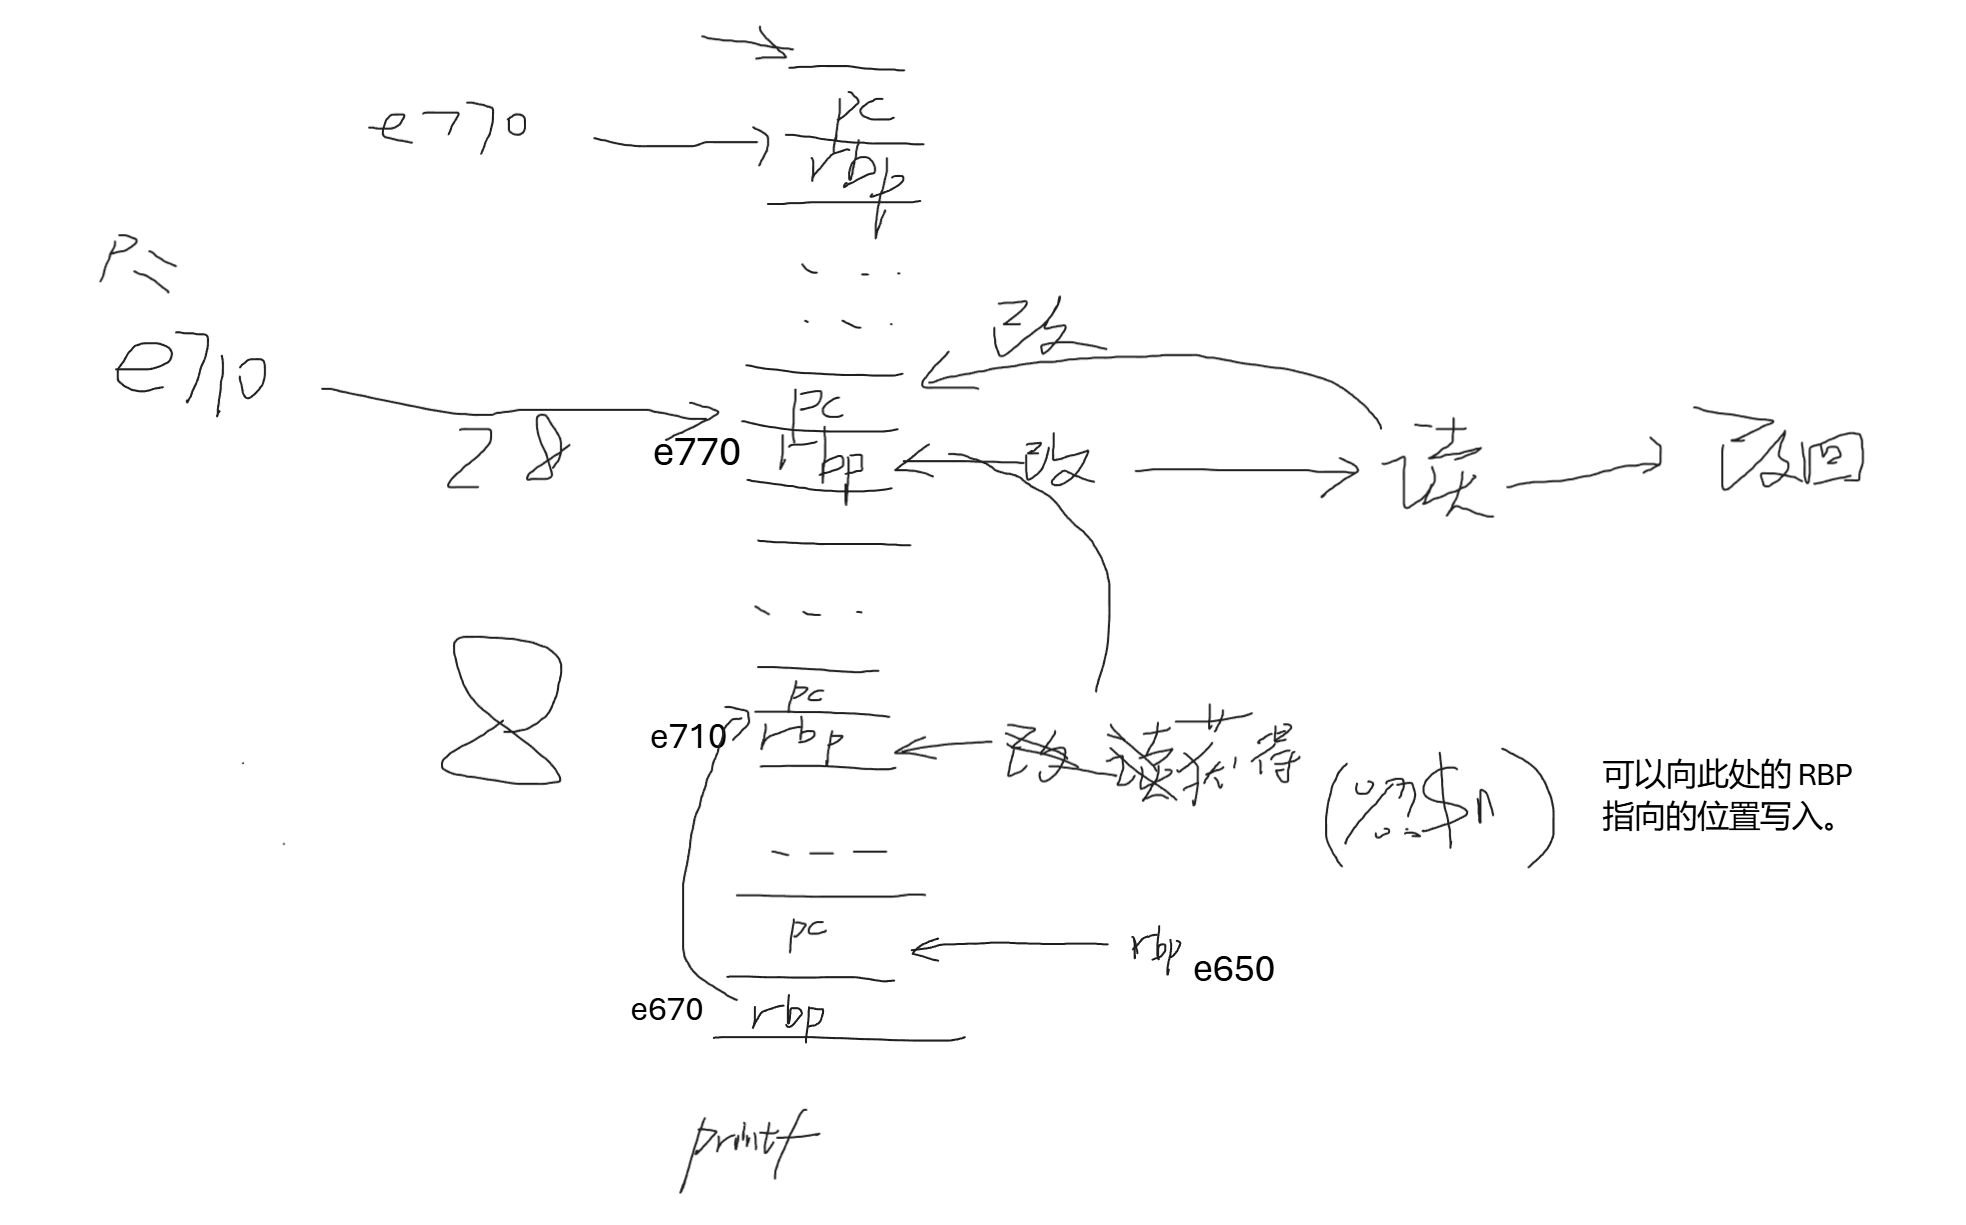 pc
e770
rbp
P=
改
e710
pc
28
e770
rbp
改
读
改回
pc
e710
rbp
获得
(%?$n)
可以向此处的 RBP
指向的位置写入。
pc
rbp
e650
e670
rbp
printf